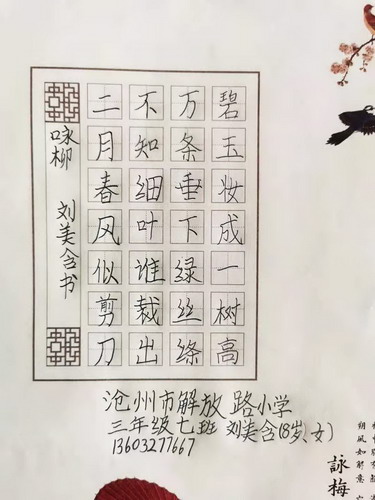 碧玉妆成一树高
万条垂下绿丝绦
不知细叶谁裁出
二月春风似剪刀
咏柳 刘美含书
沧州市解放路小学
三年级七班 刘美含(8岁、女)
13603277667
朔風如解意
詠梅